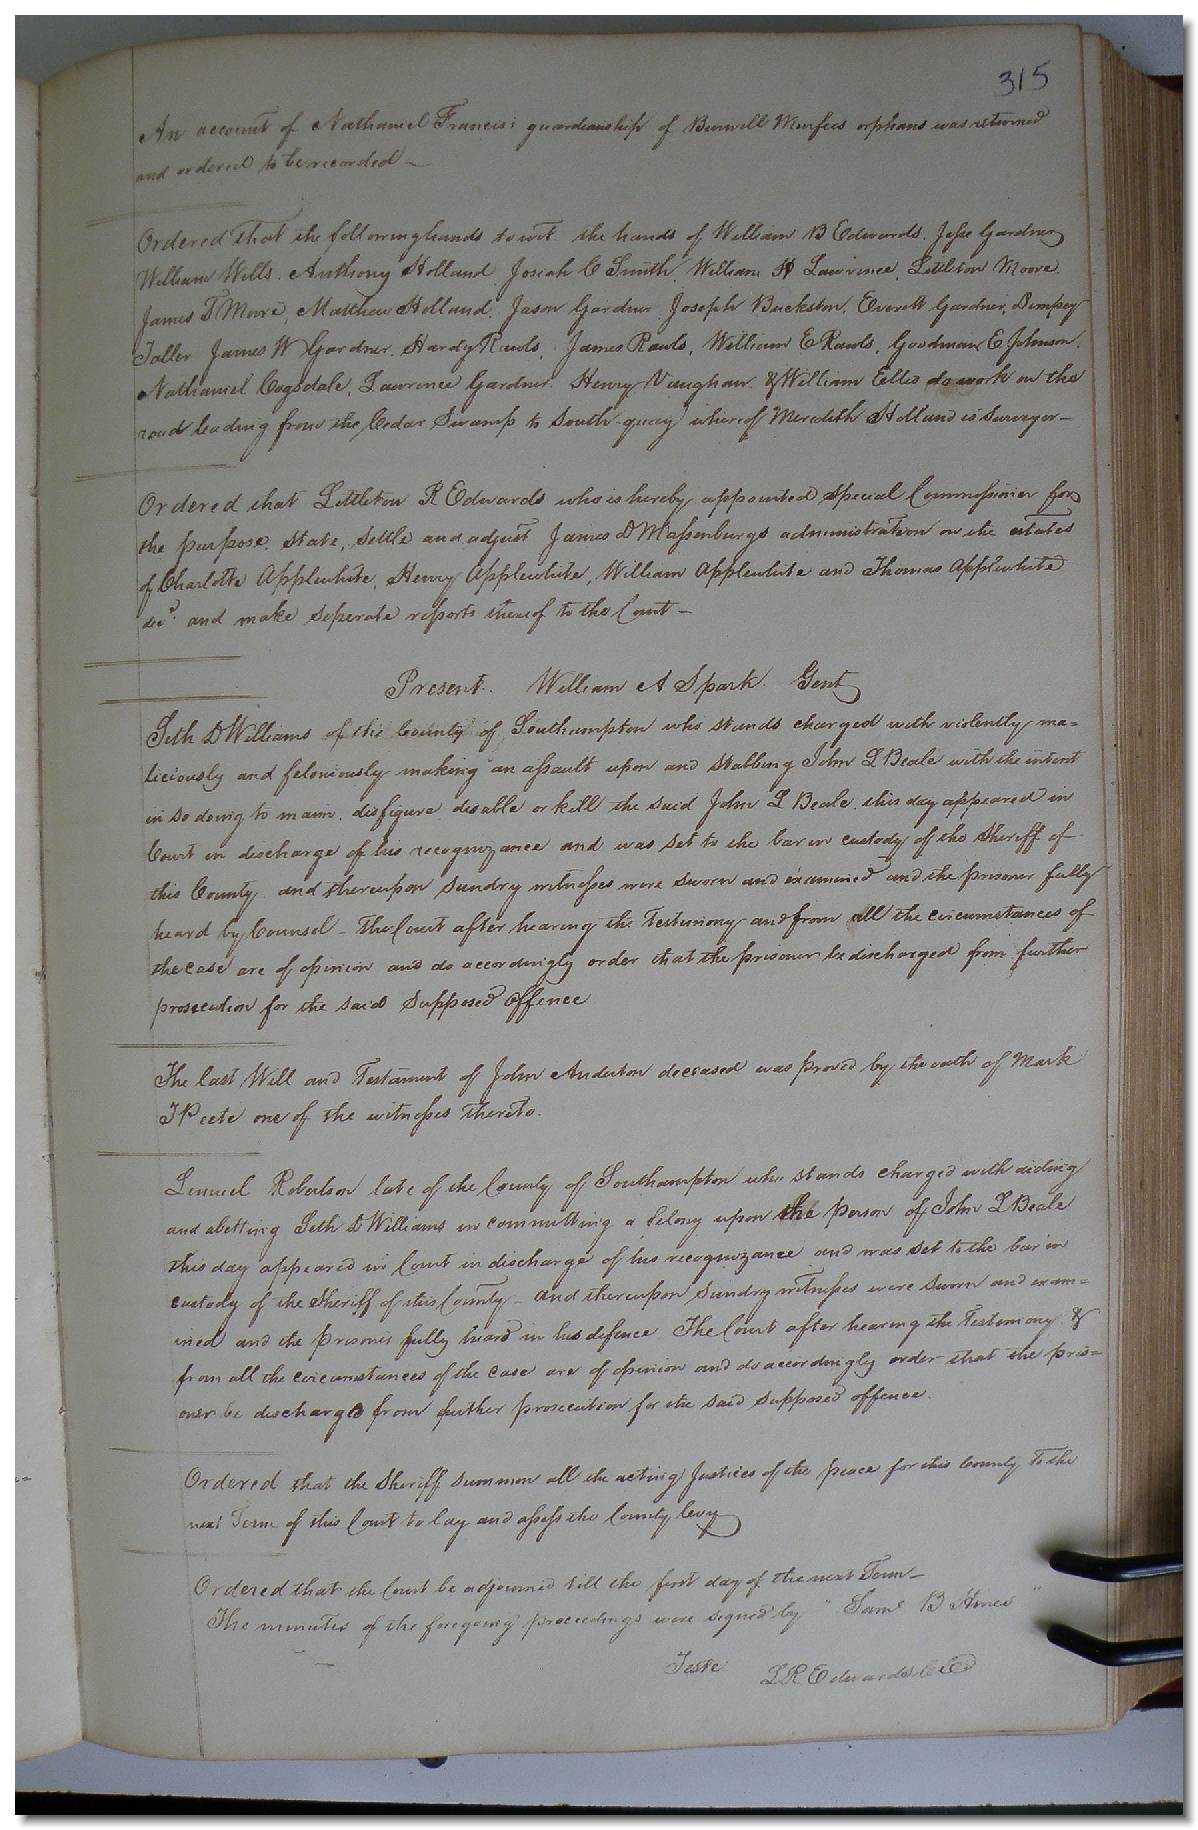 315
An account of Nathaniel Francis's guardianship of Burwell Murfees orphans was returned
and ordered to be recorded –
Ordered that the following hands to wit. the hands of William B Edwards. Jesse Gardner
William Wills. Anthony Holland. Josiah C Smith William H Lawrence. Littleton Moore.
James D Moore, Matthew Holland. Jason Gardner Joseph Buckston. Everett Gardner. Dempsey
James W Gardner. Hardy Rawls. James Rawls, William E Rawls, Goodman E Johnson.
Nathaniel Cogsdale. Lawrence Gardner. Henry Vaughan. & William Ellis do work on the
road leading from the Cedar Swamp to South quay whereof Meredith Holland is Surveyor –
Ordered that Littleton R Edwards who is hereby appointed Special Commissioner for
the purpose, State, Settle and adjust James D Massenburgs administration on the estates
of Charlotte Applewhite, Henry Applewhite, William Applewhite and Thomas Applewhite
decd. and make seperate reports thereof to the Court –
Present. William A Spark. Gent
Seth D Williams of the County of Southampton who stands charged with violently ma=
liciously and feloniously making an assault upon and Stabbing John L Beale with the intent
in so doing to maim. disfigure disable or kill the said John L Beale. this day appeared in
Court in discharge of his recognizance and was set to the bar in custody of the Sheriff of
this County and thereupon Sundry witnesses were sworn and examined and the prisoner fully
heard by Counsel – The Court after hearing the Testimony and from all the circumstances of
the case are of opinion and do accordingly order that the prisoner be discharged from further
prosecution for the said Supposed Offence
The last Will and Testament of John Anderton deceased was proved by the oath of Mark
J Peete one of the witnesses thereto.
Lemuel Robertson late of the County of Southampton who stands charged with aiding
and abetting Seth D Williams in committing a felony upon the Person of John L Beale
this day appeared in Court in discharge of his recognizance and was set to the bar in
custody of the Sheriff of this County – and thereupon Sundry witnesses were sworn and exam=
ined and the prisoner fully heard in his defence The Court after hearing the Testimony &
from all the circumstances of the case are of opinion and do accordingly order that the pris=
oner be discharged from further prosecution for the said supposed offence.
Ordered that the Sheriff summon all the acting Justices of the peace for this County to the
next Term of this Court to lay and assess the County levy
Ordered that the Court be adjourned till the first day of the next Term –
The minutes of the foregoing proceedings were signed by " Saml B Hines "
Teste L R Edwards